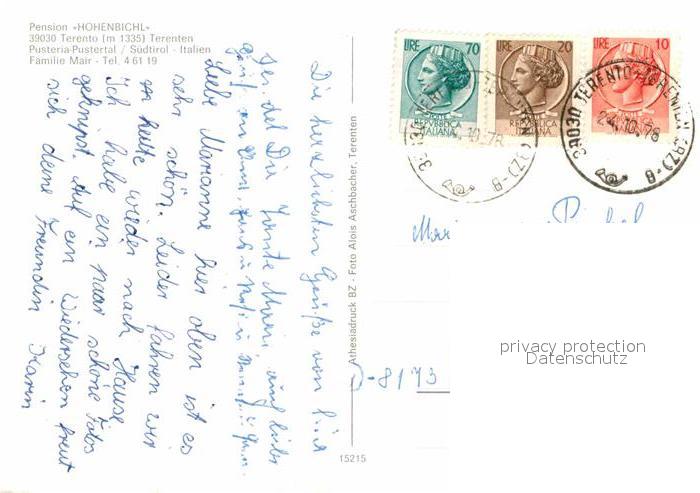 Pension «HOHENBICHL»
39030 Terento (m 1335) Terenten
Pusteria-Pustertal / Südtirol - Italien
Familie Mair - Tel. 4 61 19
Die herzlichsten Grüße von hier
Tante Maria, auch
Liebe Marianne hier oben ist es
sehr schön. Leider fahren wir
heute wieder nach Hause
Ich habe ein paar schöne Fotos
geknipst. Auf ein Wiedersehen freut
sich deine Freundin Karin
Athesiadruck BZ - Foto Alois Aschbacher, Terenten
15215
LIRE 70
REPUBBLICA ITALIANA
LIRE 20
REPUBBLICA ITALIANA
LIRE 10
39030 TERENTO-TERENTEN (BZ)-B
24.10.78
D-8173
privacy protection
Datenschutz